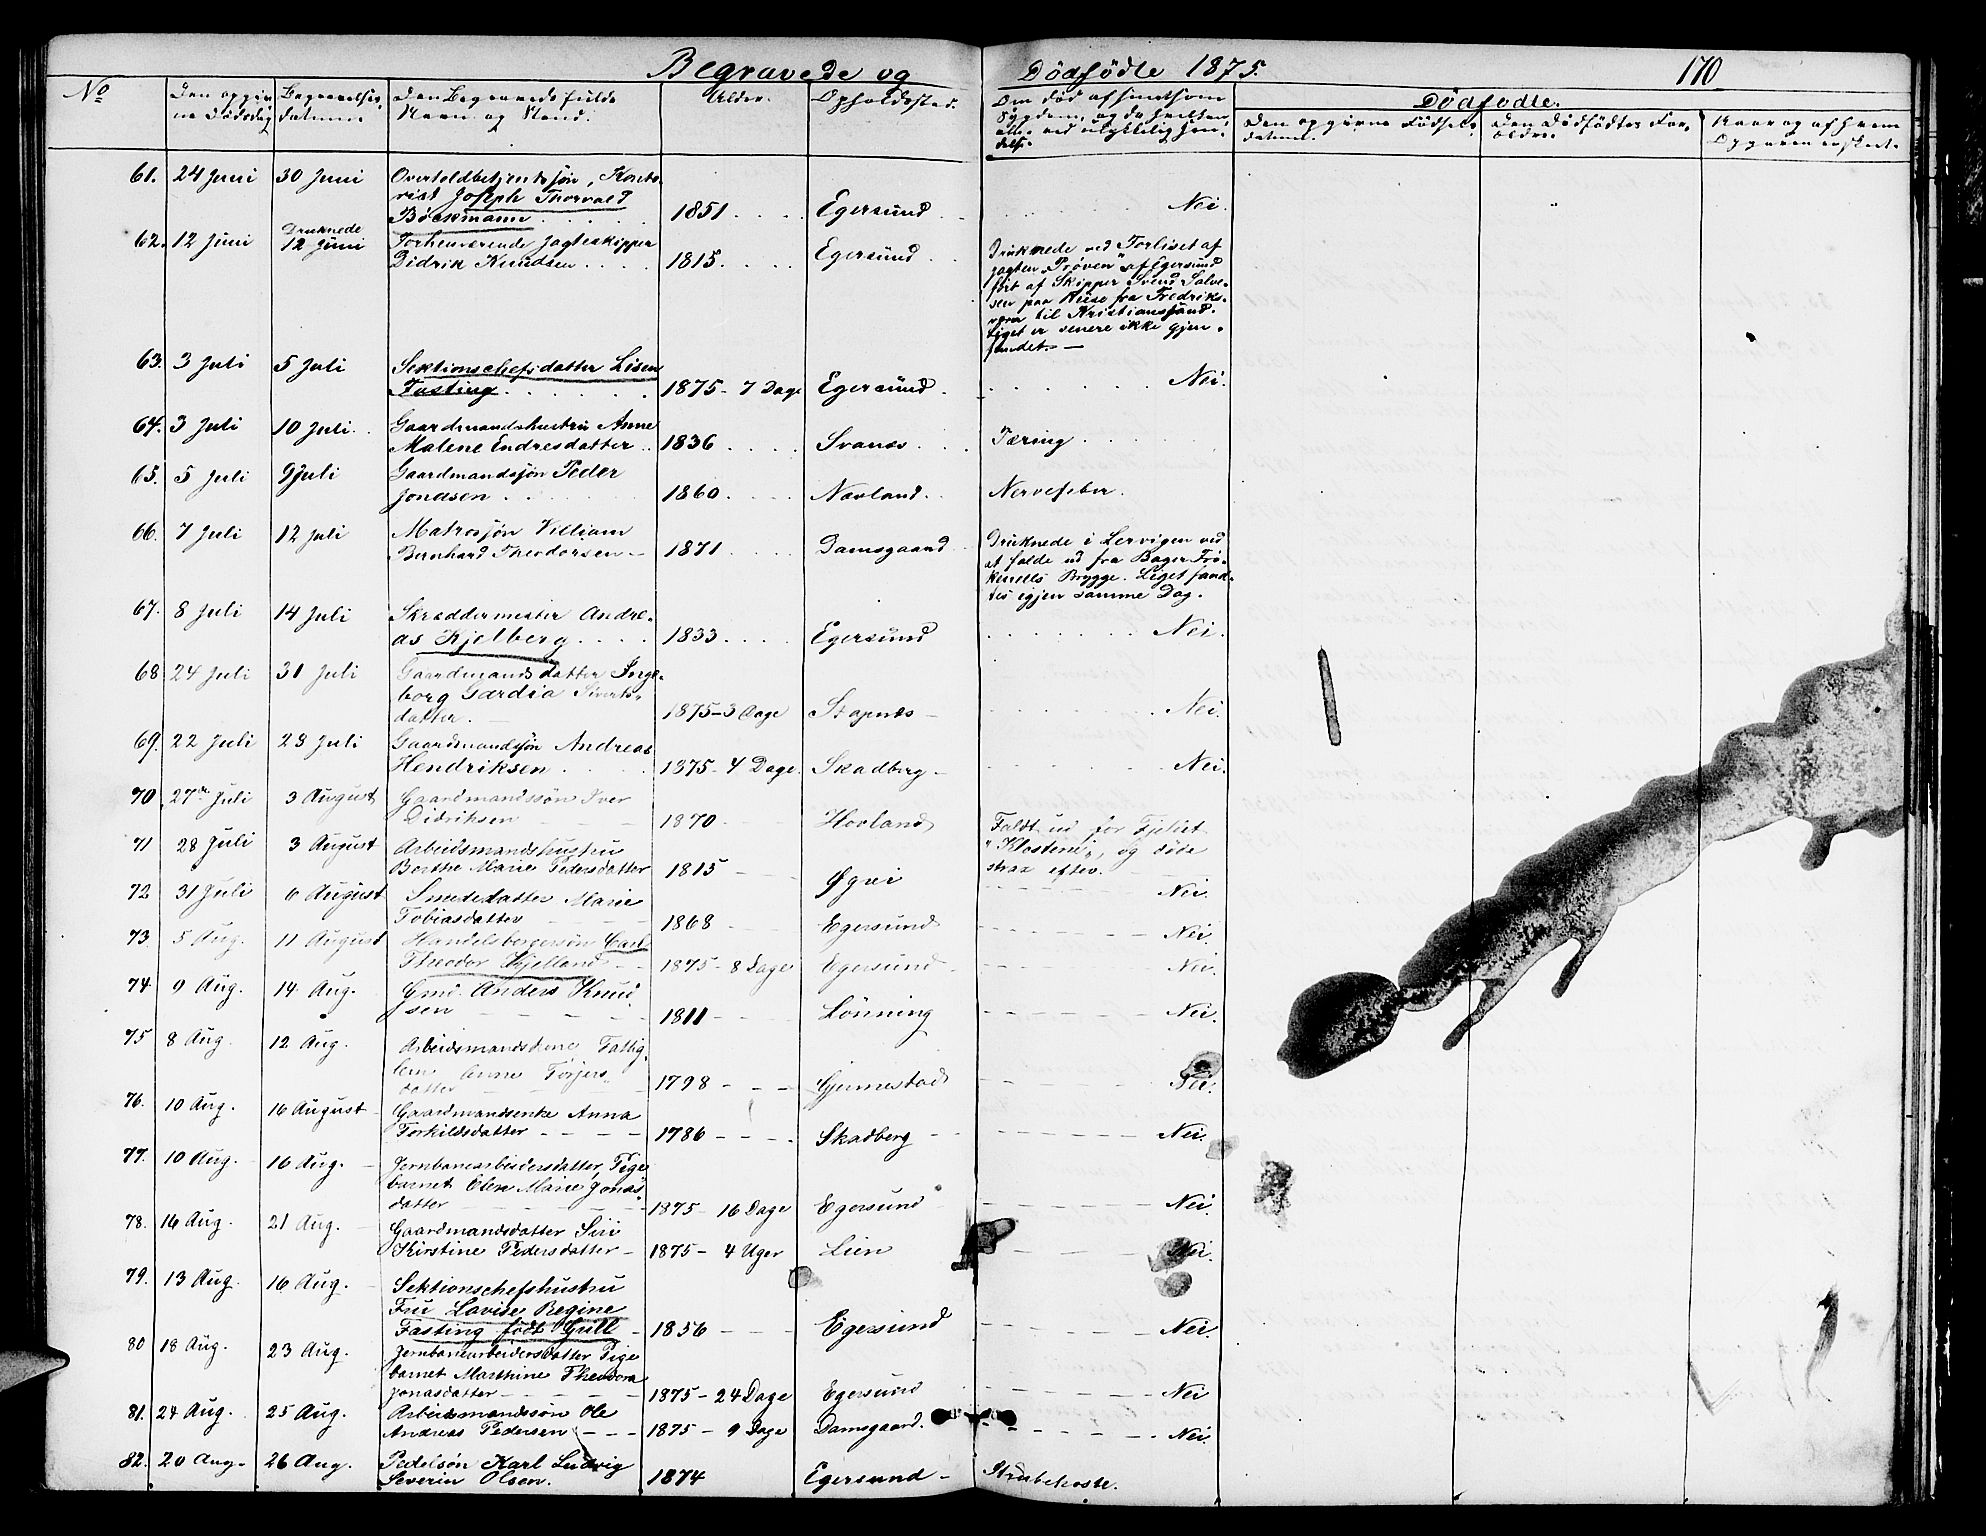 Begravede og Dødfødte 1875. 170
No
Den opgiv-
ne Dødsdag
Begravelses-
datum
Den Begravedes fulde
Navn og Stand.
Alder.
Opholdssted.
Om død af smitsom
Sygdom, og da hvilken,
Dødfødte.
Den opgivne Fødsels-
datum.
Den Dødfødtes For-
ældre.
61. 24 Juni 30 Juni Overtoldbetjentssøn, Konto-
rist Joseph Thorvald
Böckmann 1851 Egersund Nei.
62. 12 Juni Druknede
12 Juni Forhenværende Jagteskipper
Didrik Knudsen 1815. Egersund Druknede ved Forliset af
Jagten "Prøven" af Egersund
ført af Skipper Svend Salve-
sen paa Reise fra Fredriks-
værn til Kristianssand.
Liget er senere ikke gjen-
fundet. —
63. 3 Juli 5 Juli Sektionschefsdatter Lisen
Fasting 1875 - 7 Dage Egersund Nei.
64. 3 Juli 10 Juli. Gaardmandshustru Anne
Malene Endresdatter 1836 Svanes Tæring
65. 5 Juli 9 Juli Gaardmandssøn Peder
Jonassen 1860 Navland. Nervefeber.
66. 7 Juli 12 Juli Matrossøn Villiam
Bernhard Theodorsen 1871 Damsgaard Druknede i Lervigen ved
at falde ud fra Bager Frø-
kenells Brygge. Liget fand-
tes igjen samme Dag.
67. 8 Juli 14 Juli Skræddermester Andre-
as Kjelberg 1833 Egersund Nei.
68 24 Juli 31 Juli Gaardmandsdatter Inge-
borg Gardia Siverts-
datter. 1875 - 3 Dage Stapnes Nei.
69. 22 Juli 23 Juli Gaardmandssøn Andreas
Hendriksen 1875 - 4 Dage. Skadberg Nei.
70 27de Juli 3 August Gaardmandssøn Iver
Didriksen 1870 Hovland
71 28 Juli 3 August Arbeidsmandshustru
Berthe Marie Pedersdatter 1815 Øgrei Faldt ud for Fjeldet
"Klosterni", og døde
strax efter.
72 31 Juli 6 August Smededatter Marie
Tobiasdatter 1868 Egersund Nei.
73. 5 Aug. 11 August Handelsborgersøn Carl
Theodor Kjelland 1875 - 8 Dage Egersund Nei.
Nei.
74. 9 Aug. 14 Aug. Anders Knud
sen 1811 Lönning Nei.
75 8 Aug. 12 Aug. Arbeidsmandskone Fattig-
lem Anne Torjers-
datter 1798 Gjermestad Nei.
76. 10 Aug. 16 August Gaardmandsenke Anna
Torkildsdatter 1786 Skadberg Nei.
77. 10 Aug. 16 Aug. Jernbanearbeidersdatter, Pige
barnet Elen Marie Jonas-
datter 1875 - 16 Dage Egersund Nei.
78. 16 Aug. 21 Aug. Gaardmandsdatter Siri
Kirstine Pedersdatter 1875 - 4 Uger Lien Nei.
79. 13 Aug. 16 Aug. Sektionschefshustru
Fru Lovise Regine
Fasting født Grill 1856 Egersund Nei.
80 18 Aug. 23 Aug. Jernbanearbeidersdatter Pige
barnet Marthine Theodora
Jonasdatter 1875 - 24 Dage Egersund Nei
81. 24 Aug. 25 Aug. Arbeidsmandssøn Ole
Andreas Pedersen 1875 - 9 Dage Damsgaard. Nei.
82. 20 Aug. 26 Aug. Pedelsøn Karl Ludvig
Severin Olsen. 1874 Egersund Strubehoste.